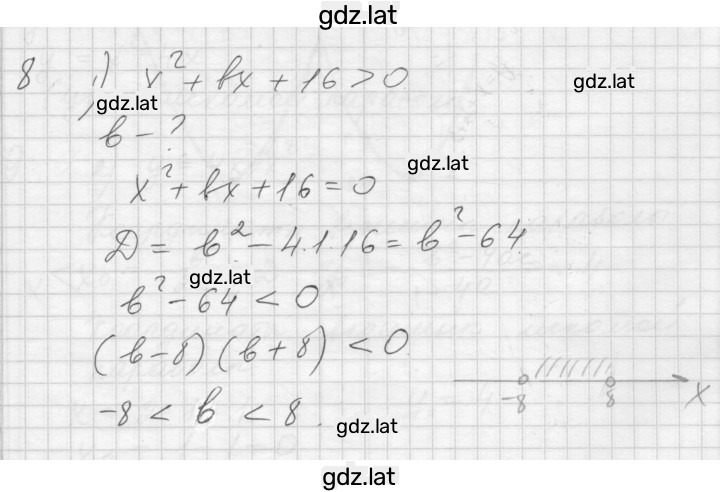 gdz.lat
8. 1) x² + bx + 16 > 0
gdz.lat
gdz.lat
b - ?
gdz.lat
x² + bx + 16 = 0
D = b² - 4·1·16 = b² - 64
gdz.lat
b² - 64 < 0
(b - 8)(b + 8) < 0
-8 8 x
-8 < b < 8.
gdz.lat
gdz.lat